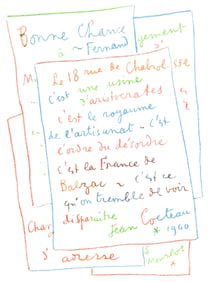 Bonne Chance
à ~ Fernand
gement
Le 18 rue de Chabrol
c'est une usine
d'aristocrates
c'est le royaume
de l'artisanat ~ c'est
l'ordre du désordre
c'est la France de
Balzac ~ c'est ce
qu'on tremble de voir
disparaître
Jean Cocteau
* 1960
Mourlot
*
d'adresse